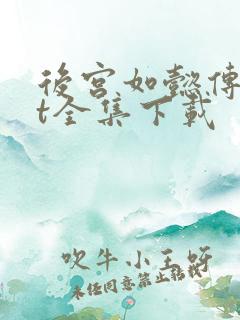 後宮如懿傳
t全集下載
吹牛小王呀
未经同意禁止转载